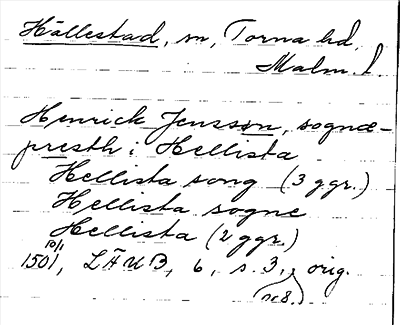 Hällestad, sn, Torna hd,
Malm. l.
Henrick Jenssøn, sognæ-
presth i Hellista
Hellista song (3 ggr.)
Hellista sogne
Hellista (2 ggr.)
10/1
1501, LÄUB, 6, s. 3, orig.
nr 8.